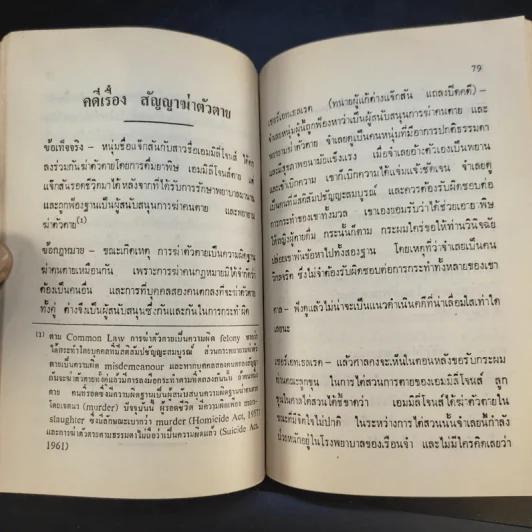 คดีเรื่อง สัญญาฆ่าตัวตาย
ข้อเท็จจริง – หนุ่มชื่อแจ๊กสันกับสาวชื่อเอมมิลี่โจนส์ ได้ตก
ลงร่วมกันฆ่าตัวตายโดยการดื่มยาพิษ เอมมิลี่โจนส์ตาย แต่
แจ๊กสันรอดชีวิตมาได้หลังจากที่ได้รับการรักษาพยาบาลมานาน
และถูกฟ้องฐานเป็นผู้สนับสนุนการฆ่าคนตาย และพยายาม
ฆ่าตัวตาย(1)
ข้อกฎหมาย – ขณะเกิดเหตุ การฆ่าตัวตายเป็นความผิดฐาน
ฆ่าคนตายเหมือนกัน เพราะการฆ่าคนกฎหมายมิได้จำกัดว่า
ต้องเป็นคนอื่น และการที่บุคคลสองคนตกลงที่จะฆ่าตัวตาย
ทั้งคู่ ต่างจึงเป็นผู้สนับสนุนซึ่งกันและกันในการกระทำผิด
(1) ตาม Common Law การฆ่าตัวตายเป็นความผิด felony
ได้กระทำโดยบุคคลที่มีสติสัมปชัญญะสมบูรณ์ ส่วนการพยายามฆ่าตัว
ตายเป็นความผิด misdemeanour และหากบุคคลสองคน
ถือเป็นความผิดฐานเป็นผู้สนับสนุนความผิดฐานฆ่าคนตาย
โดยเจตนา (murder) ปัจจุบันนี้ ผู้รอดชีวิต มีความผิดเพียง
slaughter ซึ่งมีลักษณะเบากว่า murder (Homicide Act, 1957)
และการฆ่าตัวตายตามธรรมดาไม่ถือว่าเป็นความผิดแล้ว (Suicide Act,
1961)
79
เซอร์เอทเธลเรด (ทนายผู้แก้ต่างแจ๊กสัน แถลงปิดคดี) –
จำเลยหนุ่มผู้นี้ถูกฟ้องหาว่าเป็นผู้สนับสนุนการฆ่าคนตาย และ
พยายามฆ่าตัวตาย จำเลยดูเป็นคนหนุ่มที่มีอาการปกติธรรมดา
และมีสุขภาพอนามัยแข็งแรง เมื่อจำเลยอ้างตัวเองเป็นพยาน
และเข้าเบิกความ เขาก็เบิกความได้แจ่มแจ้งชัดเจน จำเลยดู
เป็นคนที่มีสติสัมปชัญญะสมบูรณ์ และควรต้องรับผิดชอบต่อ
การกระทำของเขาทั้งมวล เขาเองยอมรับว่าได้ช่วยเอายาพิษ
ให้หญิงผู้ตายดื่ม กระนั้นก็ตาม กระผมใคร่ขอให้ท่านวินิจฉัย
ปล่อยเขาพ้นข้อหาไปทั้งสองฐาน โดยเหตุที่ว่าจำเลยเป็นคน
วิกลจริต ซึ่งไม่จำต้องรับผิดชอบต่อการกระทำทั้งหลายของเขา
ศาล – ฟังดูแล้วไม่น่าจะเป็นแนวดำเนินคดีที่น่าเลื่อมใสเท่าใด
เลยนะ
เซอร์เอทเธลเรด – แล้วศาลคงจะเห็นในตอนหลังขอรับกระผม
ท่านคณะลูกขุน ในการไต่สวนการตายของเอมมิลี่โจนส์ ลูก
ขุนในศาลไต่สวนได้ชี้ขาดว่า เอมมิลี่โจนส์ได้ฆ่าตัวตายใน
ขณะที่มีจิตใจไม่ปกติ ในระหว่างการไต่สวนนั้นจำเลยนี้กำลัง
ป่วยหนักอยู่ในโรงพยาบาลของเรือนจำ และไม่มีใครคิดเลยว่า